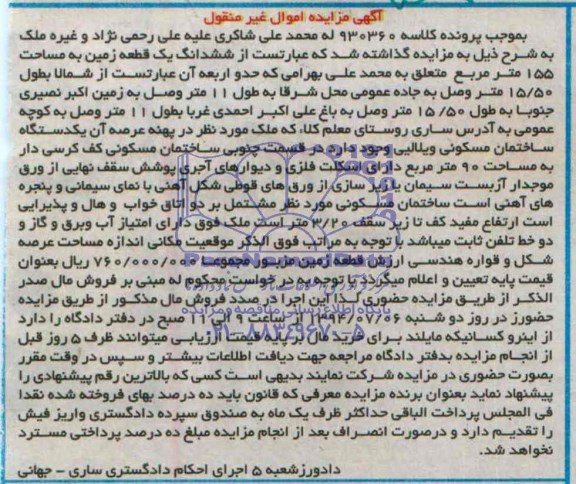 آگهی مزایده اموال غیر منقول
بموجب پرونده کلاسه ۹۳۰۳۶۰ له محمد علی شاکری علیه علی رحمی نژاد و غیره ملک
به شرح ذیل به مزایده گذاشته شد که عبارتست از ششدانگ یک قطعه زمین به مساحت
۱۵۵ متر مربع متعلق به محمد علی بهرامی که حدو اربعه آن عبارتست از شمالا بطول
۱۵/۵۰ متر وصل به جاده عمومی محل شرقا به طول ۱۱ متر وصل به زمین اکبر نصیری
جنوبا به طول ۱۵/۵۰ متر وصل به باغ علی اکبر احمدی غربا بطول ۱۱ متر وصل به کوچه
عمومی به آدرس ساری روستای معلم کلا، که ملک مورد نظر در پهنه عرصه آن یکدستگاه
ساختمان مسکونی ویلایی وجود دارد در قسمت جنوبی ساختمان مسکونی کف کرسی دار
به مساحت ۹۰ متر مربع دارای اسکلت فلزی و دیوارهای آجری پوشش سقف نهایی از ورق
موجدار آزبست سیمان با زیر سازی از ورق های قوطی شکل آهنی با نمای سیمانی و پنجره
های آهنی است ساختمان مسکونی مورد نظر مشتمل بر دو اتاق خواب و هال و پذیرایی
است ارتفاع مفید کف تا زیر سقف ۳/۲۰ متر است ملک فوق دارای امتیاز آب وبرق و گاز و
دو خط تلفن ثابت میباشد با توجه به مراتب فوق الذکر موقعیت مکانی اندازه مساحت عرصه
شکل و قواره هندسی ارزش قطعه زمین مزبور مجموعا ۷۶۰/۰۰۰/۰۰۰ ریال بعنوان
قیمت پایه تعیین و اعلام میگردد با توجه به در خواست محکوم له مبنی بر فروش مال صدر
الذکر از طریق مزایده حضوری لذا این اجرا در صدد فروش مال مذکور از طریق مزایده
حضورز در روز دو شنبه ۱۳۹۴/۰۷/۰۶ از ساعت ۹ الی ۱۱ صبح در دفتر دادگاه را دارد
از اینرو کسانیکه مایلند برای خرید مال بر پایه قیمت ارزیابی میتوانند ظرف ۵ روز قبل
از انجام مزایده بدفتر دادگاه مراجعه جهت دیافت اطلاعات بیشتر و سپس در وقت مقرر
بصورت حضوری در مزایده شرکت نمایند بدیهی است کسی که بالاترین رقم پیشنهادی را
پیشنهاد نماید بعنوان برنده مزایده معرفی که قانون باید ده درصد بهای فروخته شده نقدا
فی المجلس پرداخت الباقی حداکثر ظرف یک ماه به صندوق سپرده دادگستری واریز فیش
را تقدیم دارد و درصورت انصراف بعد از انجام مزایده مبلغ ده درصد پرداختی مسترد
نخواهد شد.
دادورزشعبه ۵ اجرای احکام دادگستری ساری - جهانی
پایگاه اطلاع رسانی مناقصه و مزایده
۰۲۱-۸۸۳۴۹۶۷۰-۵